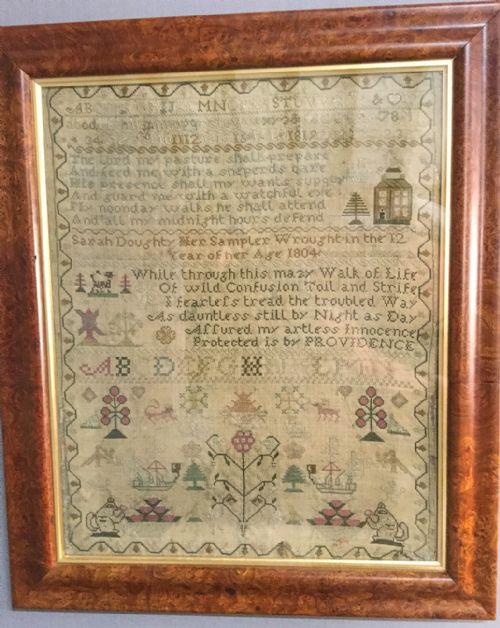 AB IJ MN STUV &
The Lord my pasture shall prepare
And feed me with a sheperds care
His presence shall my wants supply
And guard me with a watchful eye
My noonday walks he shall attend
And all my midnight hours defend
Sarah Doughty Her Sampler Wrought in the 12
Year of her Age 1804
While through this mazy Walk of Life
Of wild Confusion Toil and Strife
I fearleſs tread the troubled Way
As dauntless still by Night as Day
Aſſured my artless Innocence
Protected is by PROVIDENCE
AB DEFGH